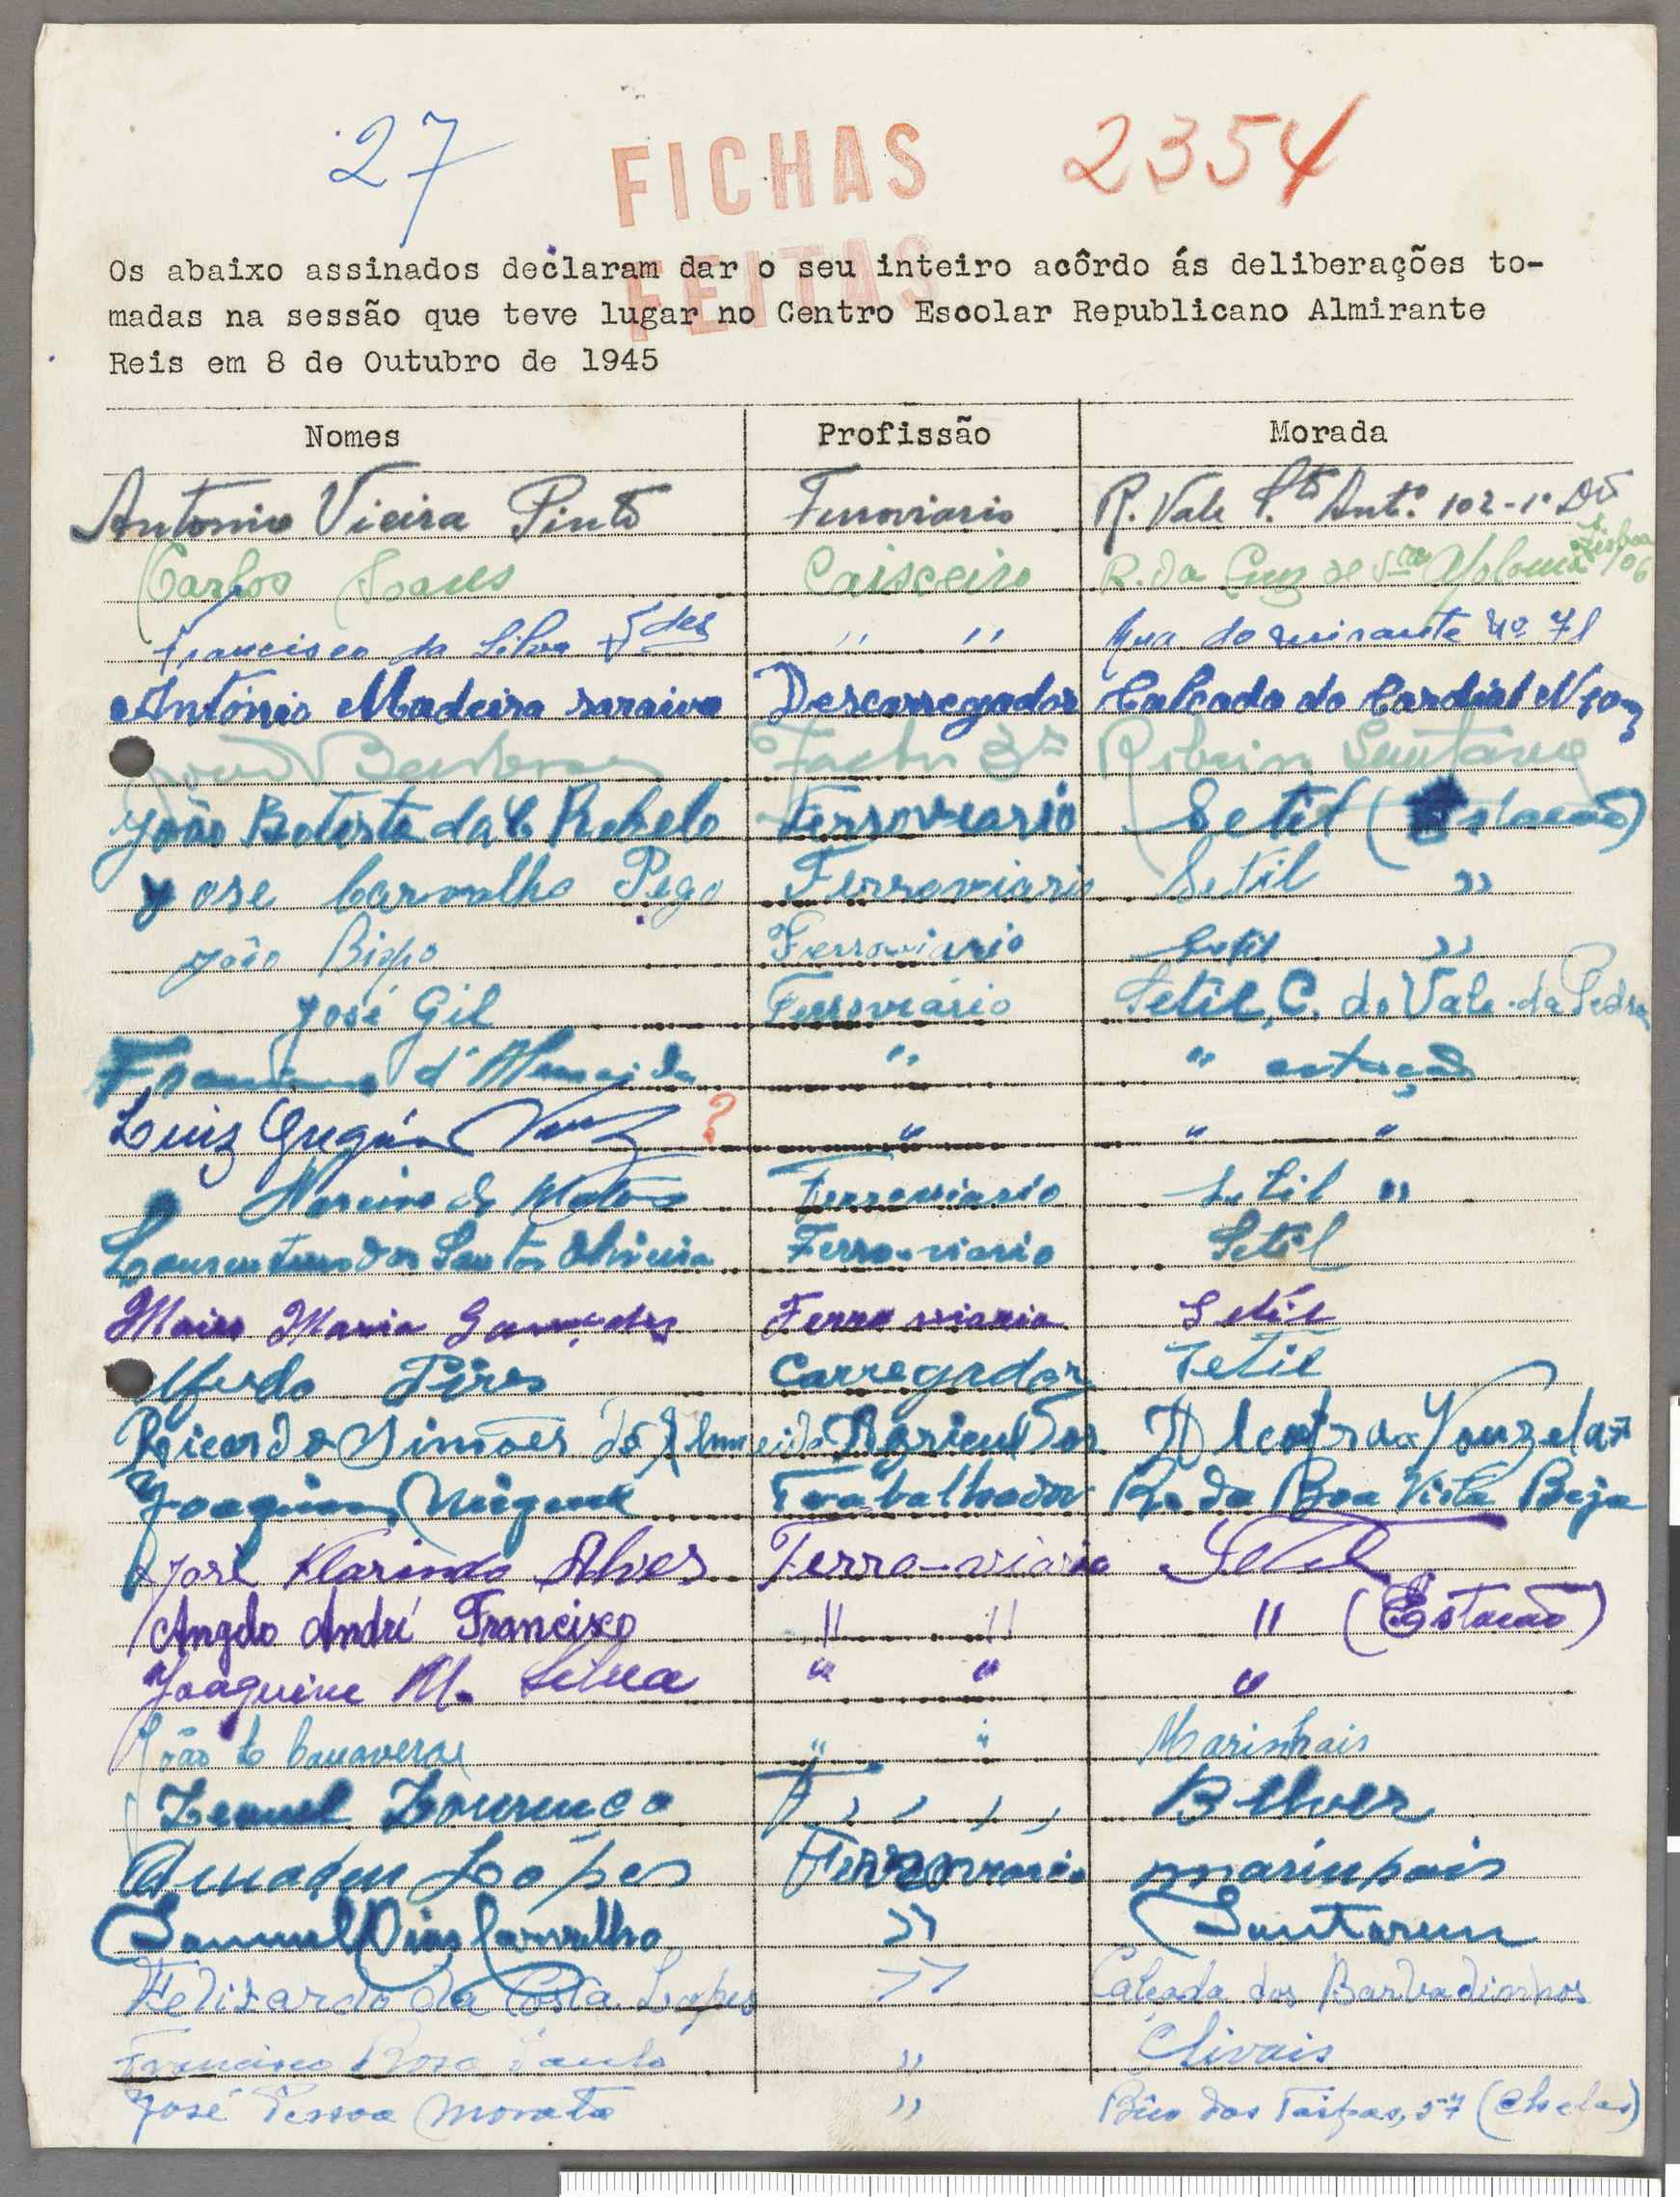 27
FICHAS
2354
FEITAS
Os abaixo assinados declaram dar o seu inteiro acôrdo ás deliberações to-
madas na sessão que teve lugar no Centro Escolar Republicano Almirante
Reis em 8 de Outubro de 1945
Nomes Profissão Morada
Antonio Vieira Pinto Ferroviario R. Vale Sto Antº 102-1º Dto
Lisboa
Carlos Soares Caixeiro R. da Cruz de Sta Apolonia 106
Francisco da Silva Fdes " " Rua do Mirante nº 71
António Madeira saraiva Descarregador Calcada do Cardial Nº
Factor 3ª Ribeira Santarem
João Batista da C Rebelo Ferroviario Setil (Estacão)
Jose Carvalho Pego Ferroviario Setil "
João Bispo Ferroviario Setil "
José Gil Ferroviário Setil, C. do Vale da Pedra
d'Almeida " " estação
Luiz ? " " "
de Matos Ferroviario Setil "
Laurentino dos Santos Oliveira Ferro-viario Setil
Maria Ferro viaria Setil
Alfredo Pires Carregador Setil
Ricardo Simões de Almeida Agricultor Vouzela
Joaquim Miguel Trabalhador R. da Boa Vista Beja
José Florindo Alves Ferro-viario Setil
Angelo André Francisco " " " (Estacão)
Joaquim M. Silva " " "
João C Canaveras " " Marinhais
Leonel Lourenço F , , , , Belver
Amadeu Lópes Ferroviario marinhais
Samuel Dias Carvalho " Santarem
Felisardo da Costa Lopes " Calçada dos Barbadinhos
Francisco Rosa Paulo " Olivais
José Pessoa Morata " Bêco dos Taipas, 57 (Chelas)